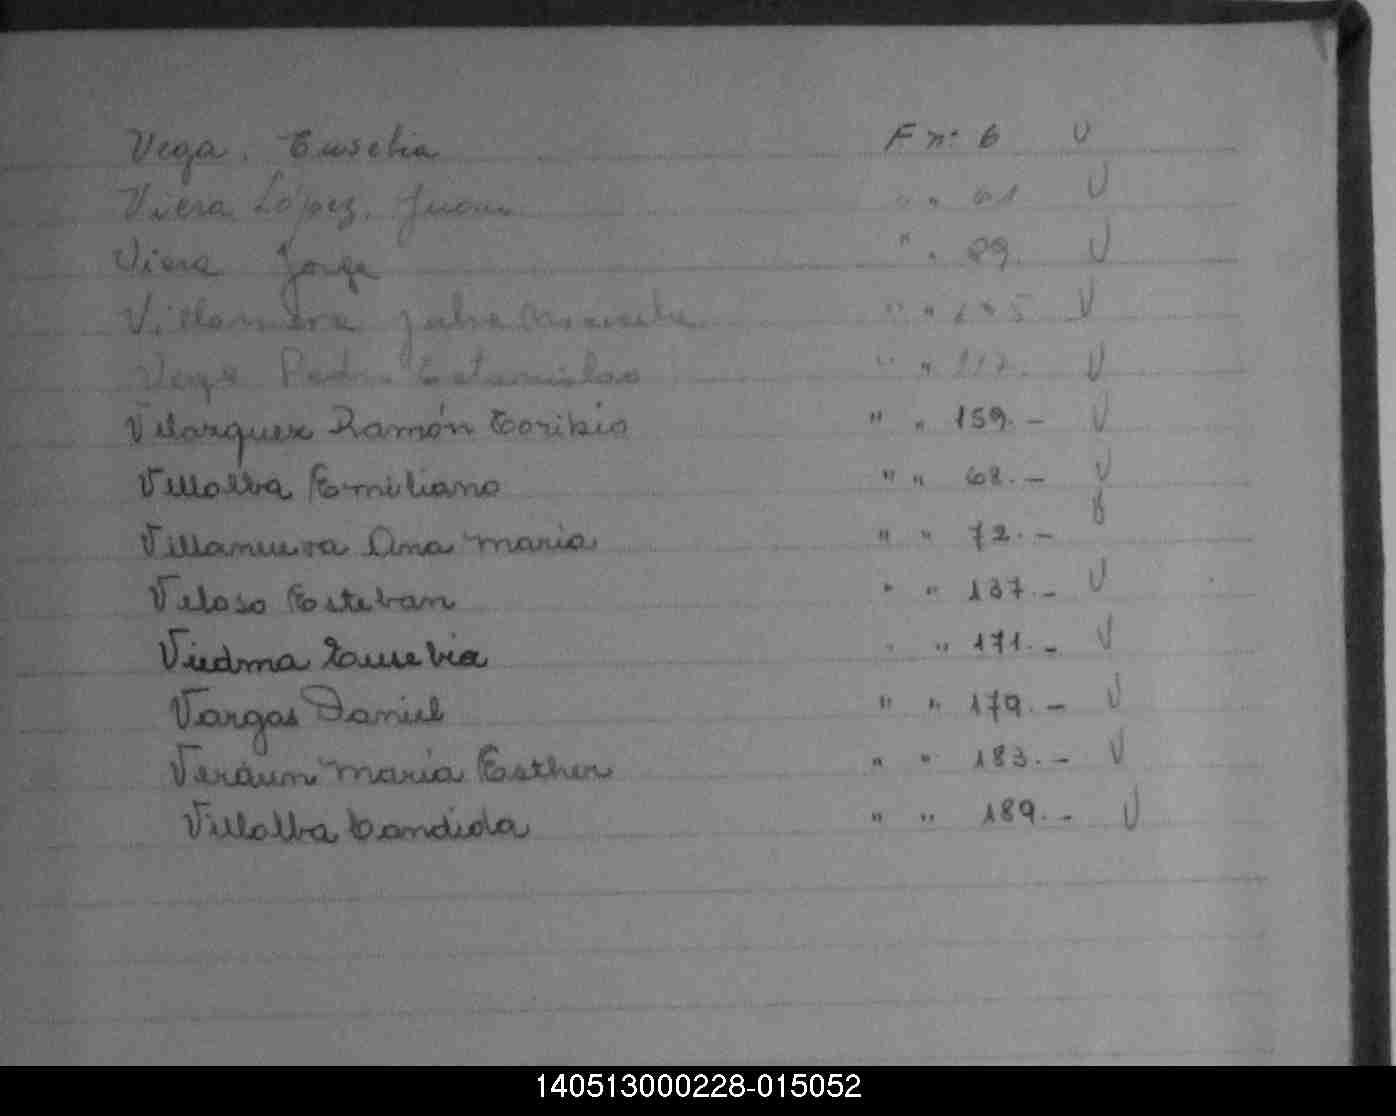 Vega, Eusebia F nº 6 V
Viera López, Juan " " 61 V
Viera Jorge " " 89. V
" " V
Vega Pedro Estanislao " " 117. V
Velazquez Ramón Toribio " " 159.- V
Villalba Emiliano " " 68.- V
Villanueva Ana maria " " 72.- V
Veloso Esteban " " 137.- V
Viedma Eusebia " " 171.- V
Vargas Daniel " " 179.- V
Verdun maria Esther " " 183.- V
Villalba Candida " " 189.- V
140513000228-015052